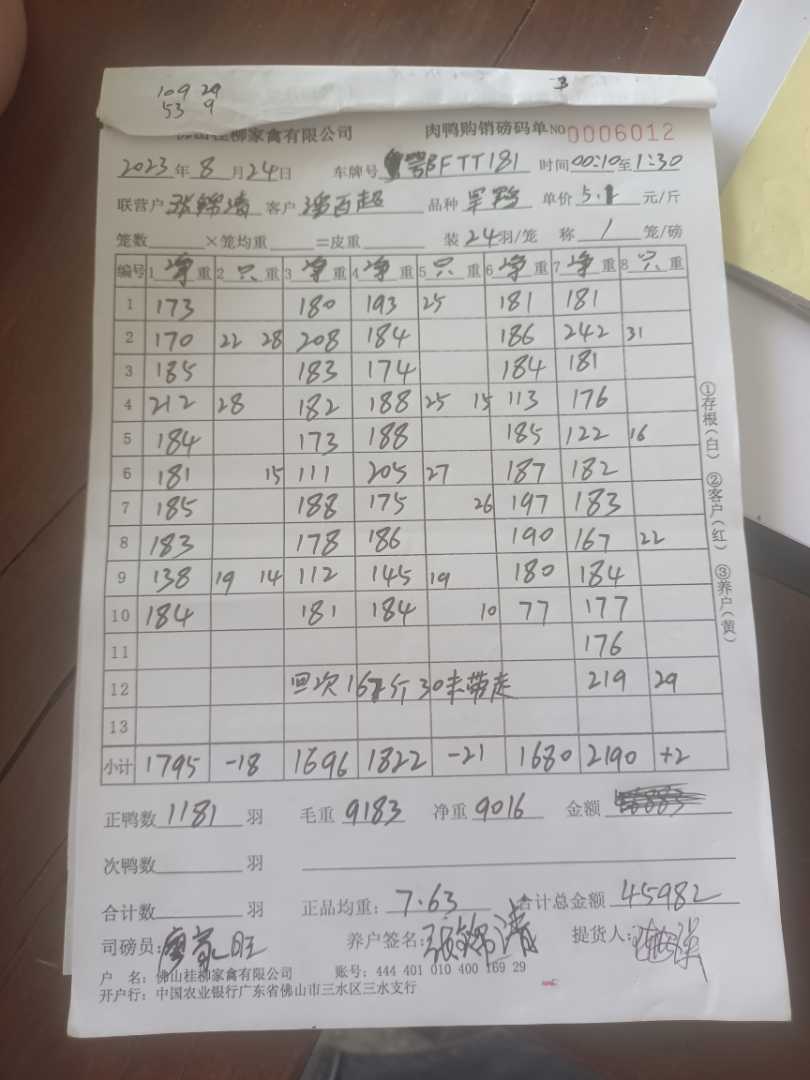 109 29 3
53 9
佛山桂柳家禽有限公司 肉鸭购销磅码单NO 0006012
2023年8月24日 车牌号 粤BFTT181 时间00:10至1:30
联营户 张锦清 客户 潘百超 品种 单价5.1 元/斤
笼数 ×笼均重 =皮重 装24羽/笼 称 1 笼/磅
编号 1净重 2只重 3净重 4净重 5只重 6净重 7净重 8只重
1 173 180 193 25 181 181
2 170 22 28 208 184 186 242 31
3 185 183 174 184 181
4 212 28 182 188 25 15 113 176
5 184 173 188 185 122 16
6 181 15 111 205 27 187 182
7 185 188 175 26 197 183
8 183 178 186 190 167 22
9 138 19 14 112 145 19 180 184
10 184 181 184 10 77 177
11 176
12 回次167斤30未带走 219 29
13
小计 1795 -18 1696 1822 -21 1680 2190 +2
正鸭数 1181 羽 毛重 9183 净重 9016 金额
次鸭数 羽
合计数 羽 正品均重: 7.63 合计总金额 45982
司磅员: 养户签名: 张锦清 提货人:
户 名: 佛山桂柳家禽有限公司 账号: 444 401 010 400 169 29
开户行: 中国农业银行广东省佛山市三水区三水支行
①存根(白) ②客户(红) ③养户(黄)